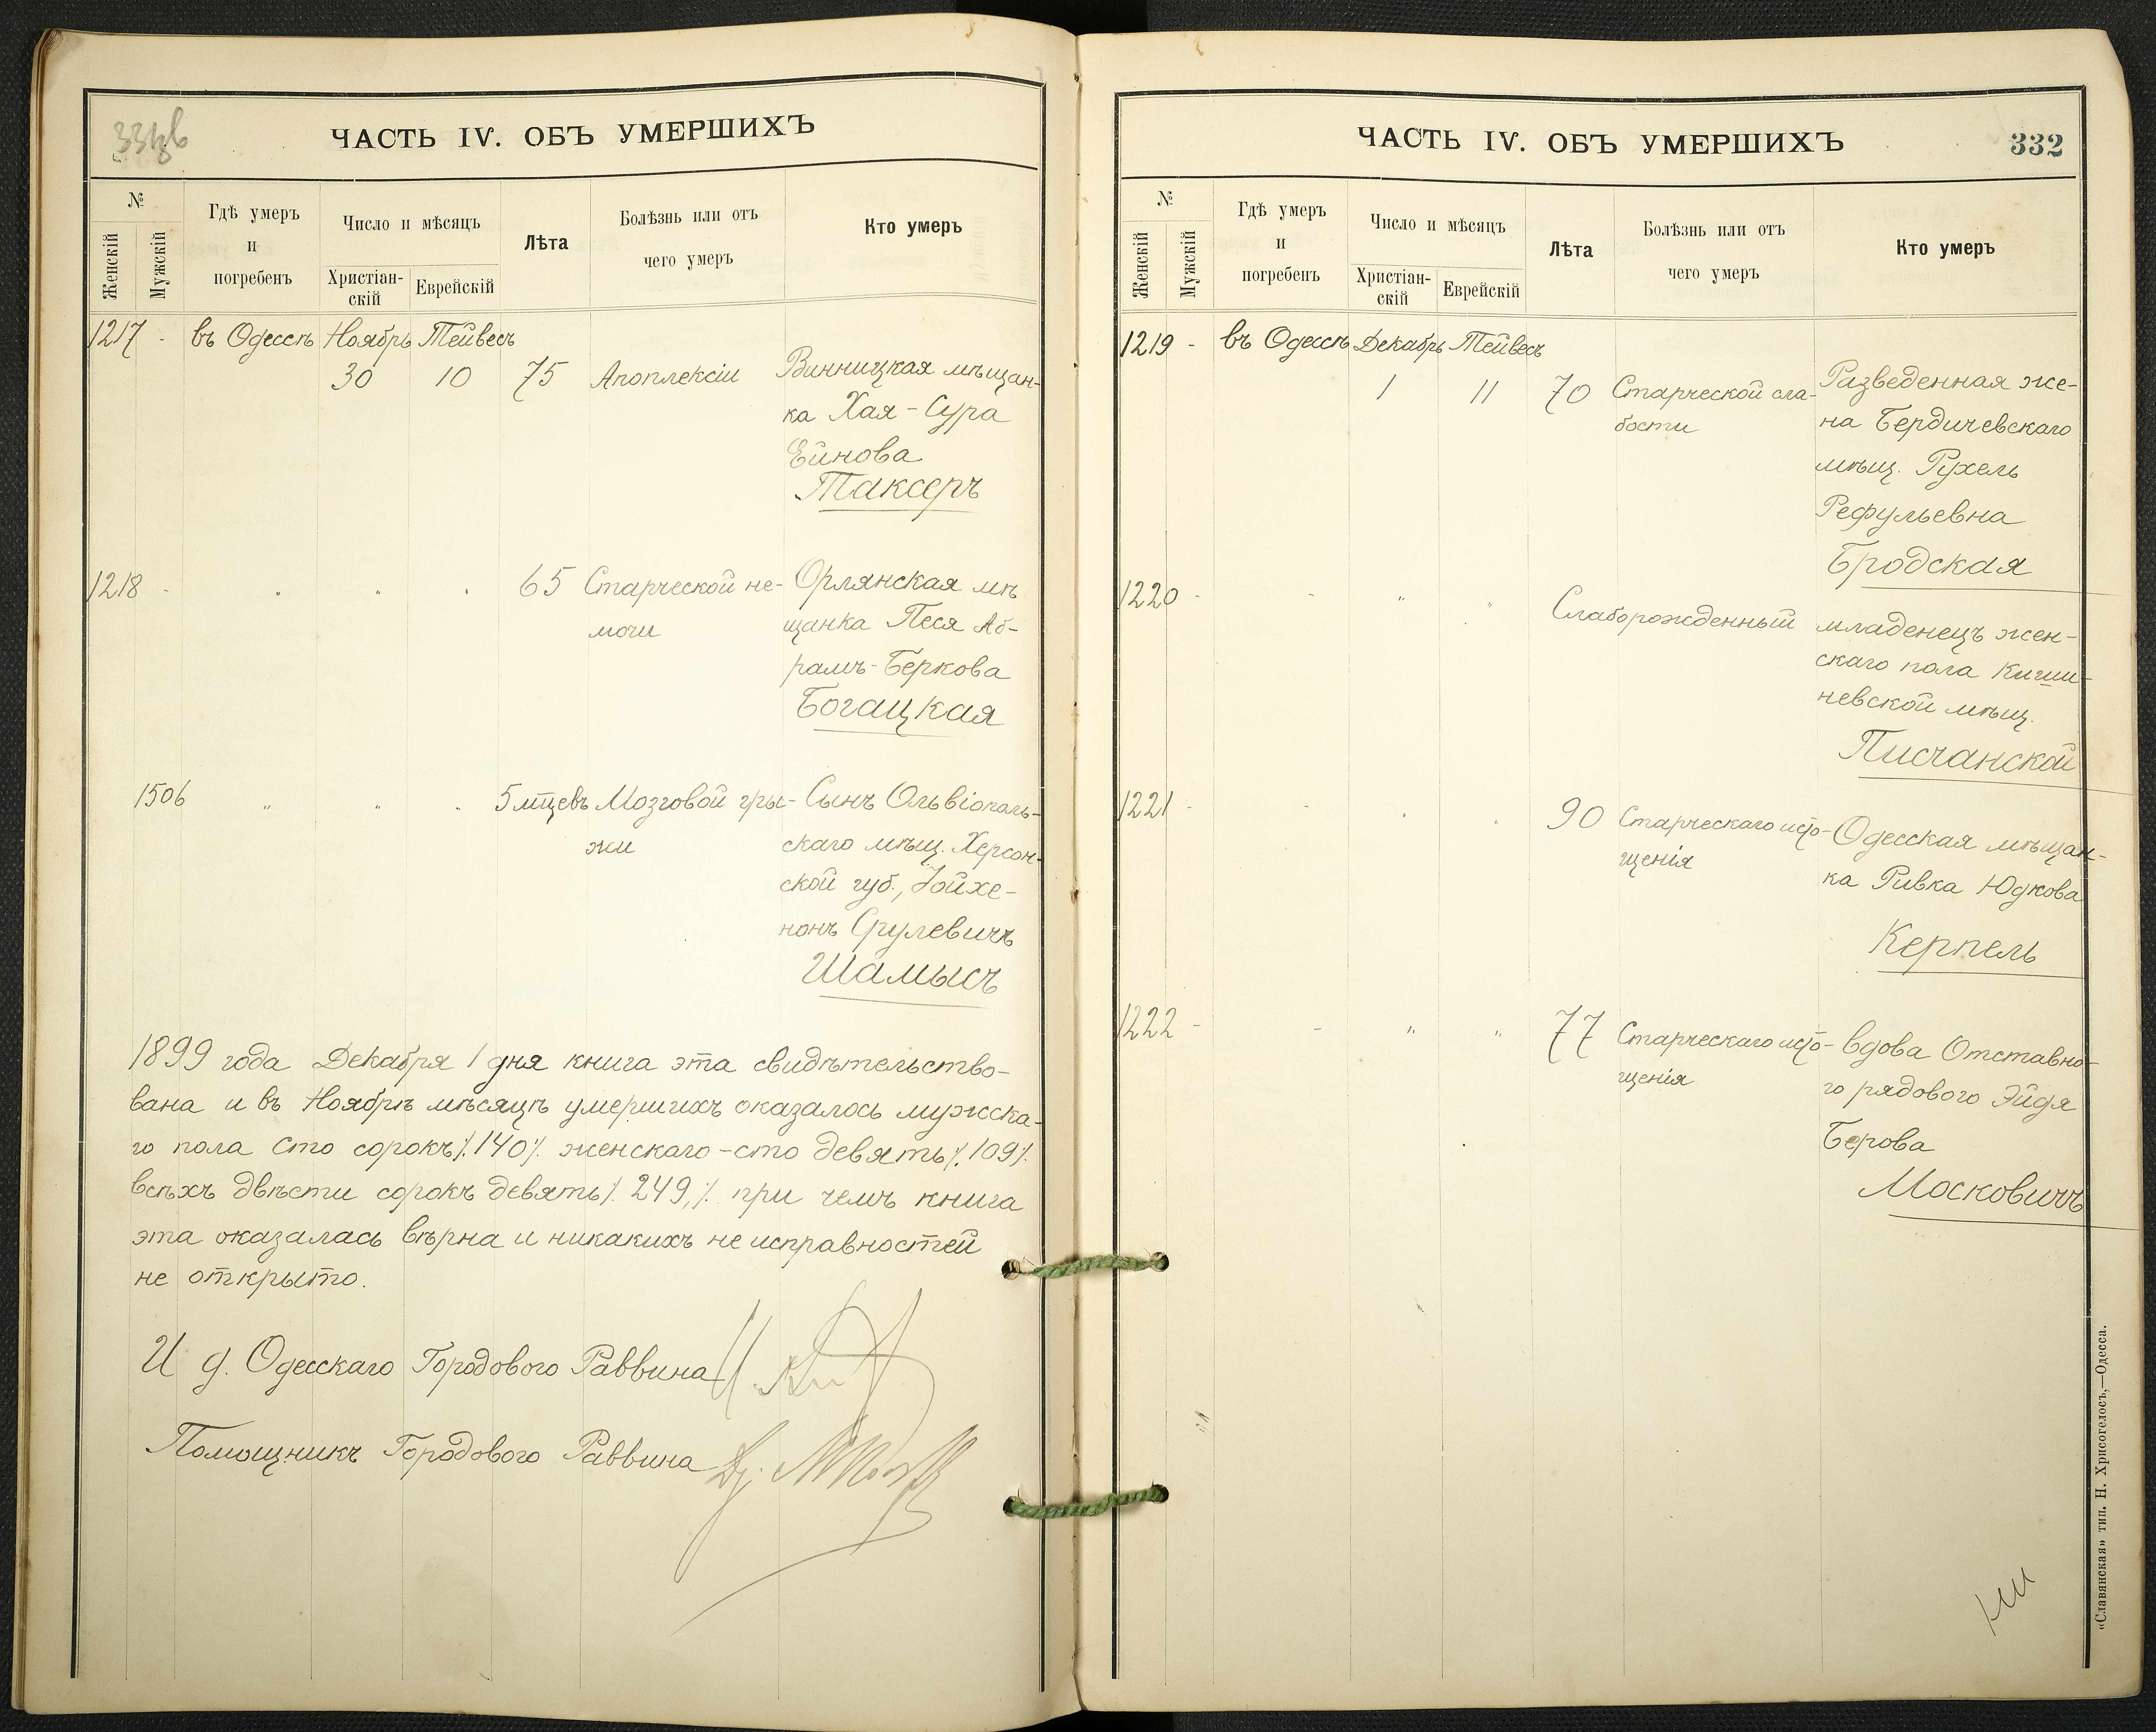 ЧАСТЬ IV. ОБЪ УМЕРШИХЪ
№
Женскій
Мужскій
Гдѣ умеръ
и
погребенъ
Число и мѣсяцъ
Христіан-
скій
Еврейскій
Лѣта
Болѣзнь или отъ
чего умеръ
Кто умеръ
1217 - въ Одессѣ Ноябрь Тейвесъ
30 10 75 Апоплексіи Винницкая мѣщан-
ка Хая-Сура
Ейнова
Таксеръ
1218 - " " " 65 Старческой не- Орлянская мѣ
мочи щанка Песя Аб-
рамъ-Беркова
Богацкая
1506 " " " 5 мцевъ Мозговой гры- Сынъ Ольвіополь-
жи скаго мѣщ. Херсон-
ской губ., Іойхе-
нонъ Срулевичъ
Шамысъ
1899 года Декабря 1 дня книга эта свидѣтельство-
вана и въ Ноябрѣ мѣсяцѣ умершихъ оказалось мужска-
го пола сто сорокъ ⁒ 140 ⁒ женскаго - сто девять ⁒ 109 ⁒
всѣхъ двѣсти сорокъ девять ⁒ 249, ⁒ при чемъ книга
эта оказалась вѣрна и никакихъ не исправностей
не открыто.
И д. Одесскаго Городового Раввина
Помощникъ Городового Раввина
ЧАСТЬ IV. ОБЪ УМЕРШИХЪ
332
№
Женскій
Мужскій
Гдѣ умеръ
и
погребенъ
Число и мѣсяцъ
Христіан-
скій
Еврейскій
Лѣта
Болѣзнь или отъ
чего умеръ
Кто умеръ
1219 - въ Одессѣ Декабрь Тейвесъ
1 11 70 Старческой сла- Разведенная же-
бости на Бердичевскаго
мѣщ. Рухель
Рефульевна
Бродская
1220 - - " " Слаборожденный младенецъ жен-
скаго пола Киши-
невской мѣщ.
Писчанской
1221 - - " " 90 Старческаго исто- Одесская мѣщан-
щенія ка Ривка Юдкова
Керпель
1222 - - " " 77 Старческаго исто- вдова Отставно-
щенія го рядового Эйдя
Берова
Московичъ
«Славянская» тип. Н. Хрисогелосъ,—Одесса.